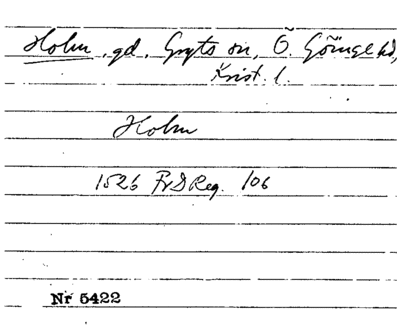 Holm, gd, Gryts sn, Ö. Göinge hd,
Krist. l.
Holm
1526 FrDReg. 106
Nr 5422